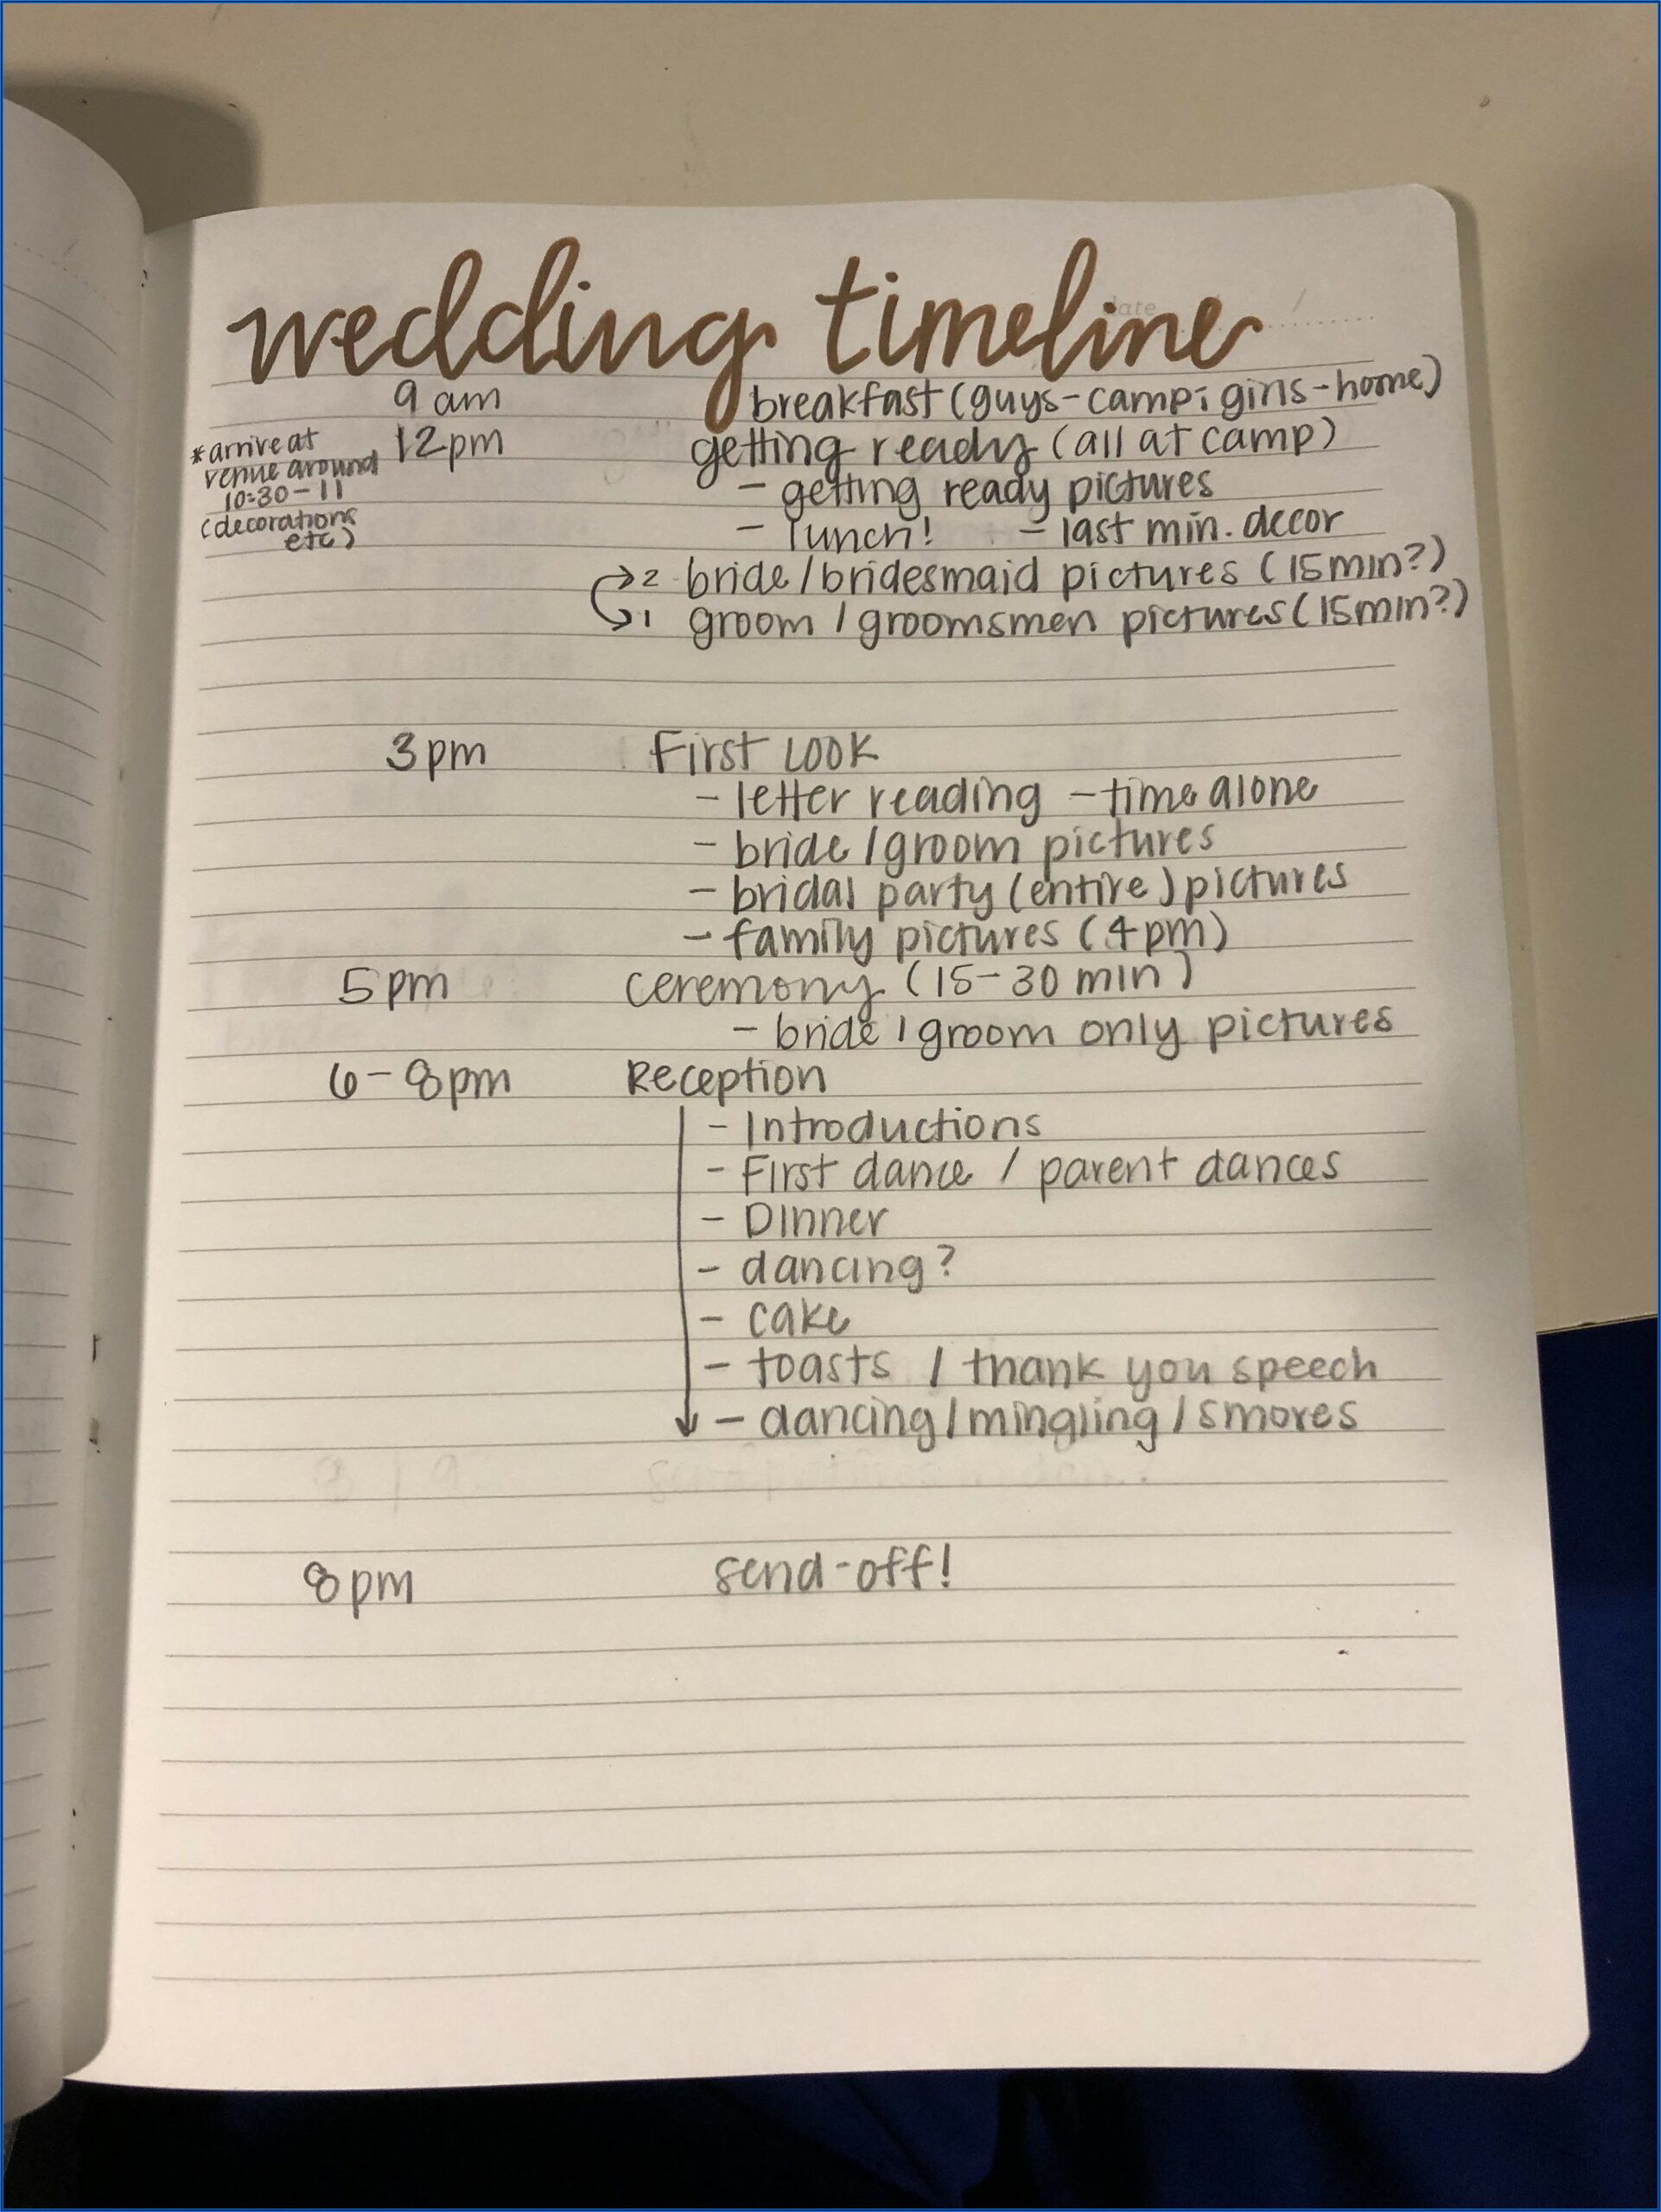 wedding timeline
date / /
9 am breakfast (guys-camp; girls-home)
*arrive at
venue around
10:30-11
(decorations
etc)
12pm getting ready (all at camp)
- getting ready pictures
- lunch! - last min. decor
2 bride/bridesmaid pictures (15min?)
1 groom/groomsmen pictures (15min?)
3pm First Look
- letter reading - time alone
- bride/groom pictures
- bridal party (entire) pictures
- family pictures (4pm)
5pm ceremony (15-30 min)
- bride/groom only pictures
6-8pm Reception
- Introductions
- First dance / parent dances
- Dinner
- dancing?
- cake
- toasts / thank you speech
- dancing/mingling/smores
8pm send-off!